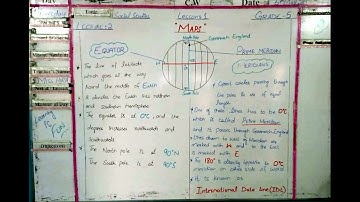 C.W
Date
Topic
Social Studies
Lesson 1
GRADE-5
LECTURE:2
"MAPS"
North Pole
Greenwich England
EQUATOR
PRIME MERIDIAN
W
E
MERIDIANS
The line of latitude
which goes all the way
round the middle of Earth
It divides the Earth into northern
and southern Hemisphere
The Equator is at 0°C, and the
degrees increase northwards and
Southwards
The North pole is at 90°N
The South pole is at 90°S
South Pole
passing through
the poles is of equal
length
One of these lines has to be 0°C
which is called Prime Meridian
and it passes through Greenwich England
lines drawn to west of Meridian are
marked with W and to the East
is marked with E
The 180° is directly opposite to 0°C
meridian on other side of world
it is known as
International Date Line (IDL)
Learning
is
FUN